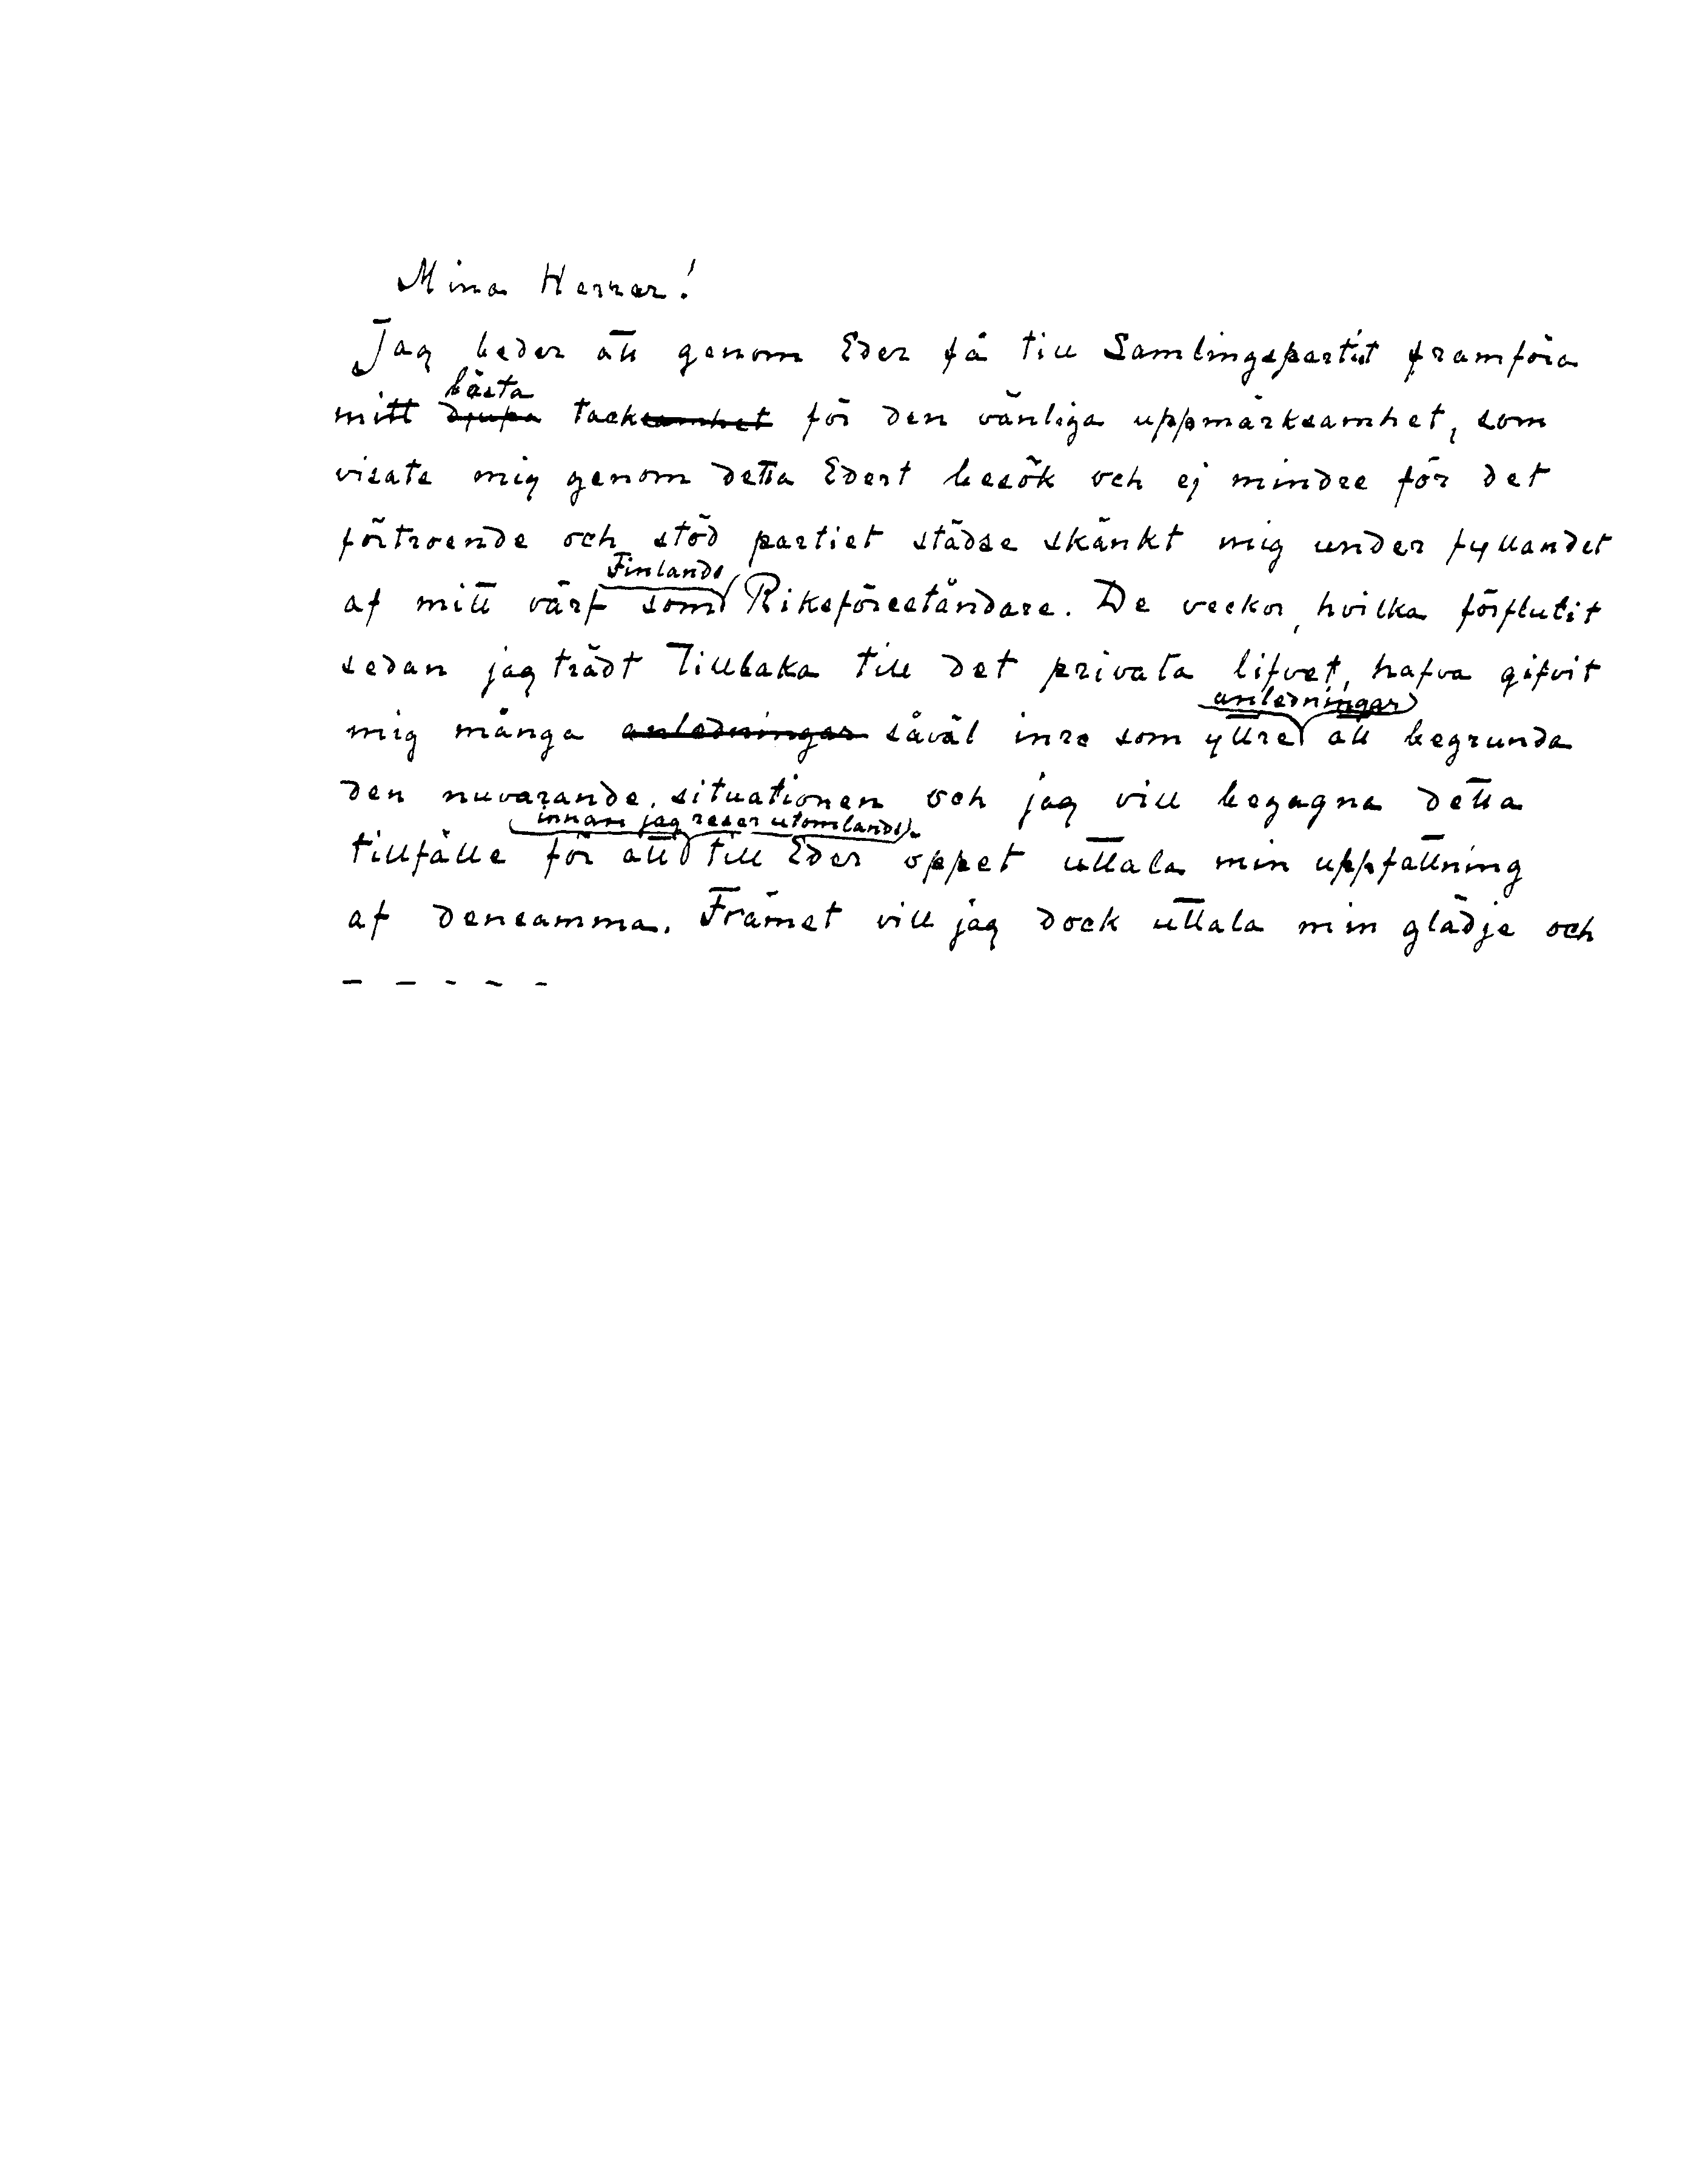 Mina Herrar!
Jag beder att genom Eder få till Samlingspartiet framföra
bästa
mitt djupa tacksamhet för den vänliga uppmärksamhet, som
visats mig genom detta Edert besök och ej mindre för det
förtroende och stöd partiet städse skänkt mig under fyllandet
Finlands
af mitt värf som Riksföreståndare. De veckor, hvilka förflutit
sedan jag trädt tillbaka till det privata lifvet, hafva gifvit
anledningar
mig många anledningar såväl inre som yttre att begrunda
den nuvarande situationen och jag vill begagna detta
innan jag reser utomlands
tillfälle för att till Eder öppet uttala min uppfattning
af densamma. Främst vill jag dock uttala min glädje och
– – – – –